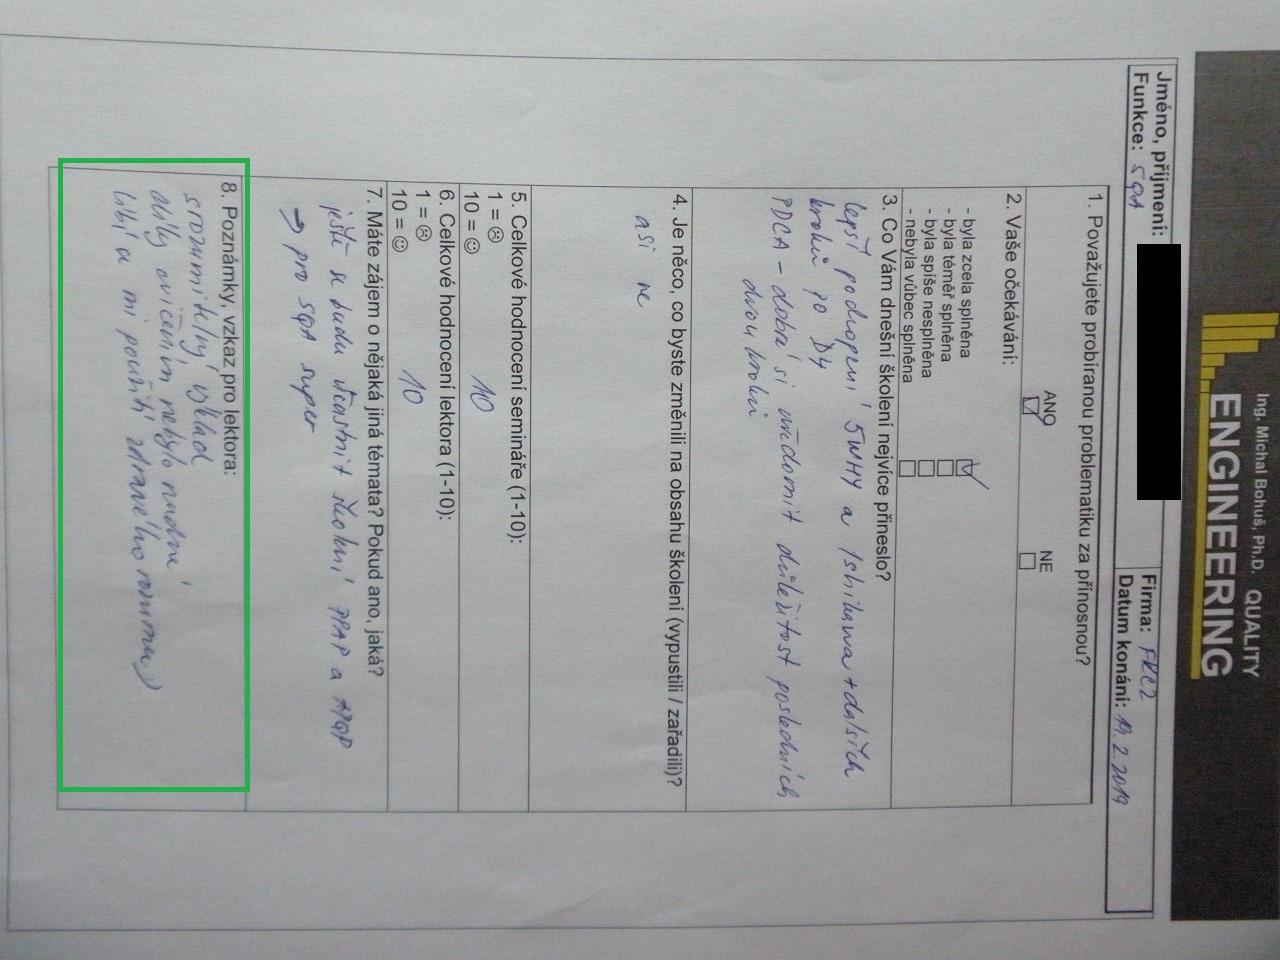 Ing. Michal Bohuš, Ph.D. QUALITY
ENGINEERING
Jméno, příjmení:
Firma: FKC2
Funkce: SQA
Datum konání: 19.2.2019
1. Považujete probíranou problematiku za přínosnou?
ANO
NE
2. Vaše očekávání:
- byla zcela splněna
- byla téměř splněna
- byla spíše nesplněna
- nebyla vůbec splněna
3. Co Vám dnešní školení nejvíce přineslo?
lepší podchopení 5WHY a Ishikawa + dalších
kroků po D4
PDCA - dobrá si uvědomit důležitost posledních
dvou kroků
4. Je něco, co byste změnili na obsahu školení (vypustili / zařadili)?
asi ne
5. Celkové hodnocení semináře (1-10):
1 = ☹
10 = ☺
10
6. Celkové hodnocení lektora (1-10):
1 = ☹
10 = ☺
10
7. Máte zájem o nějaká jiná témata? Pokud ano, jaká?
ještě se budu účastnit školení PPAP a APQP
→ pro SQA super
8. Poznámky, vzkaz pro lektora:
srozumitelný výklad
díky cvičením nebylo nudné
líbí se mi použití zdravého rozumu